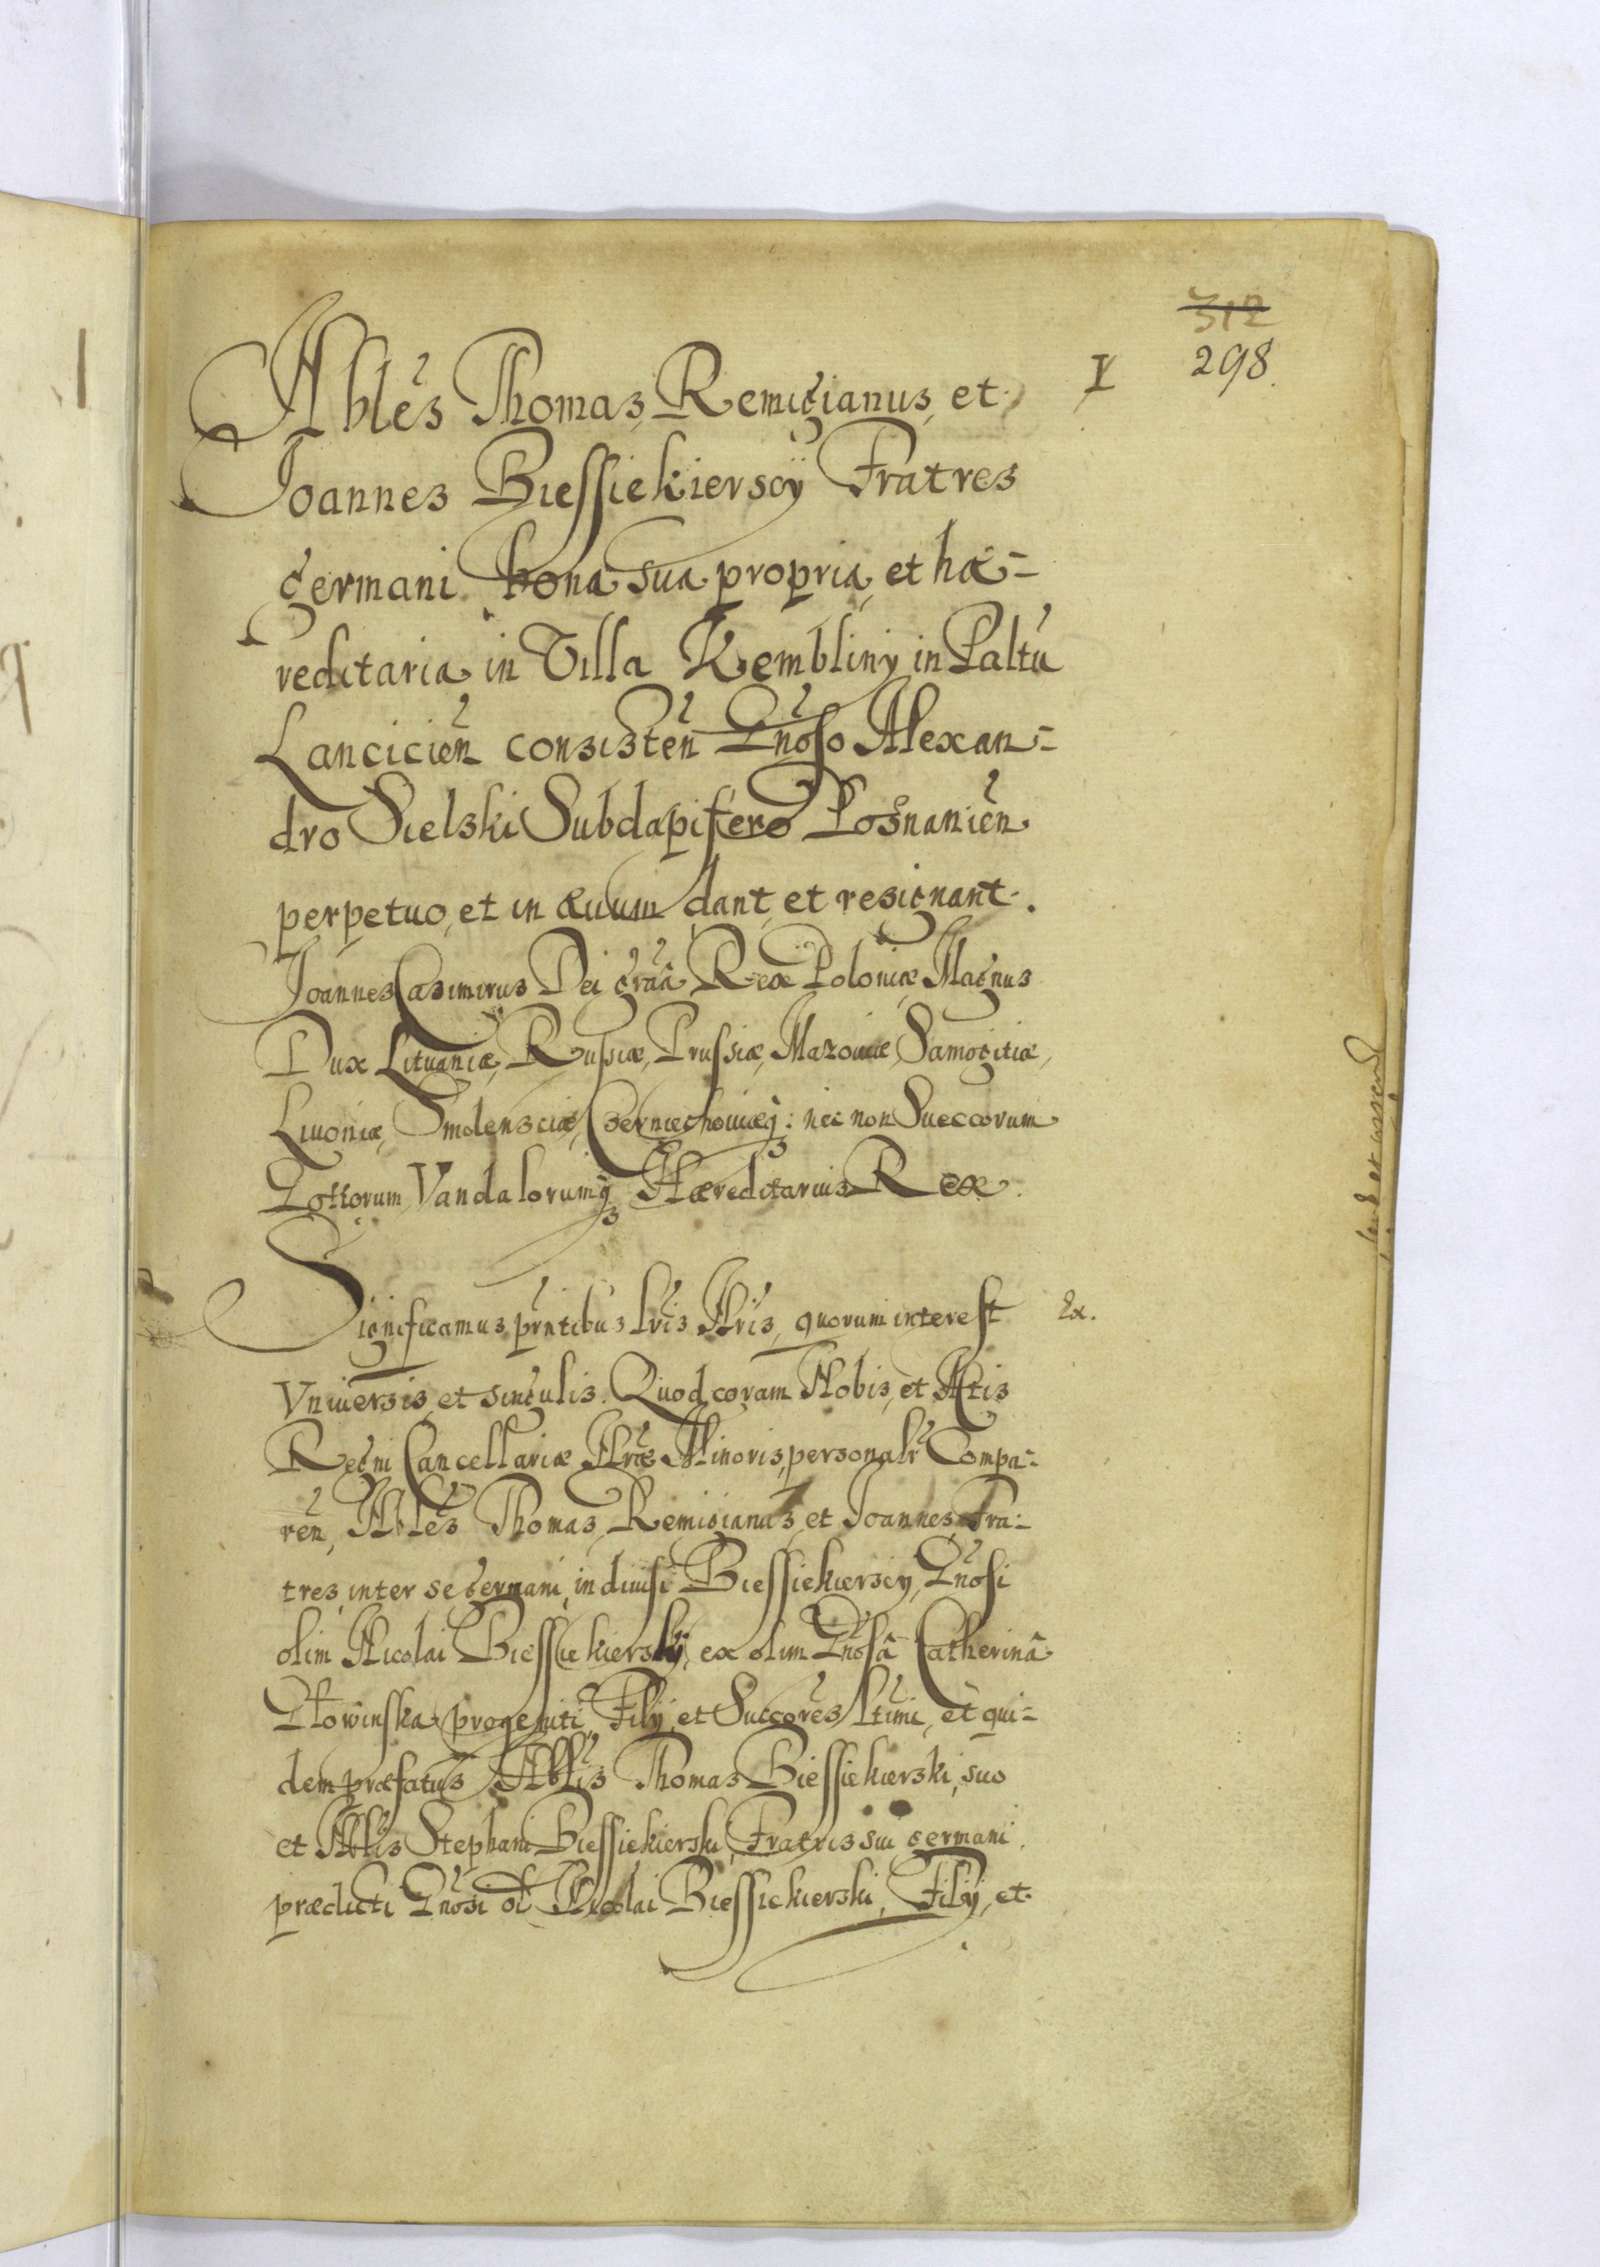 312
298.
Nbles Thomas, Remigianus, et
Joannes Biessiekierscÿ Fratres
germani bona sua propria, et hæ-
reditaria in Villa Kembliny in Paltu
Lancicien consisten Gnoso Alexan-
dro Sielski Subdapifero Posnanien
perpetuo, et in æuum dant, et resignant.
Joannes Casimirus Dei graâ Rex Poloniæ Magnus
Dux Lituaniæ, Russiæ, Prussiæ, Mazouiæ, Samogitiæ,
Liuoniæ, Smolensciæ, Czerniechouiæq: nec non Sueccorum
Gottorum Vandalorumq Hæreditarius Rex.
Significamus pntibus lris Nris, quorum interest
Ex.
Vniuersis, et singulis. Quod coram Nobis, et Actis
Regni Cancellariæ Nræ Minoris, personalr Compa-
ren, Nbles Thomas, Remigianus, et Joannes, Fra-
tres inter se germani, indiuisi Biessiekierscy, Gnosi
olim Nicolai Biessiekierskÿ, ex olim Gnosâ Catherinâ
Głowinska progeniti, Filÿ, et Succores ltimi, et qui-
dem præfatus Nblis Thomas Biessiekierski, suo
et Nblis Stephani Biessiekierski, Fratris sui germani
prædicti Gnosi ol Nicolai Biessiekierski, Filÿ, et